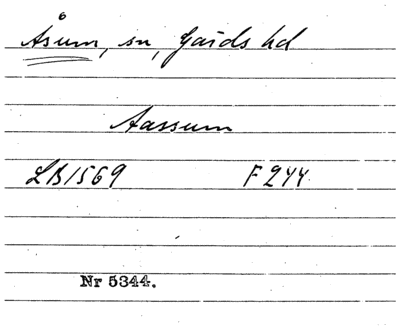 Åsum, sn, Gärds hd
Aassum
LB 1569 F 244
Nr 5344.